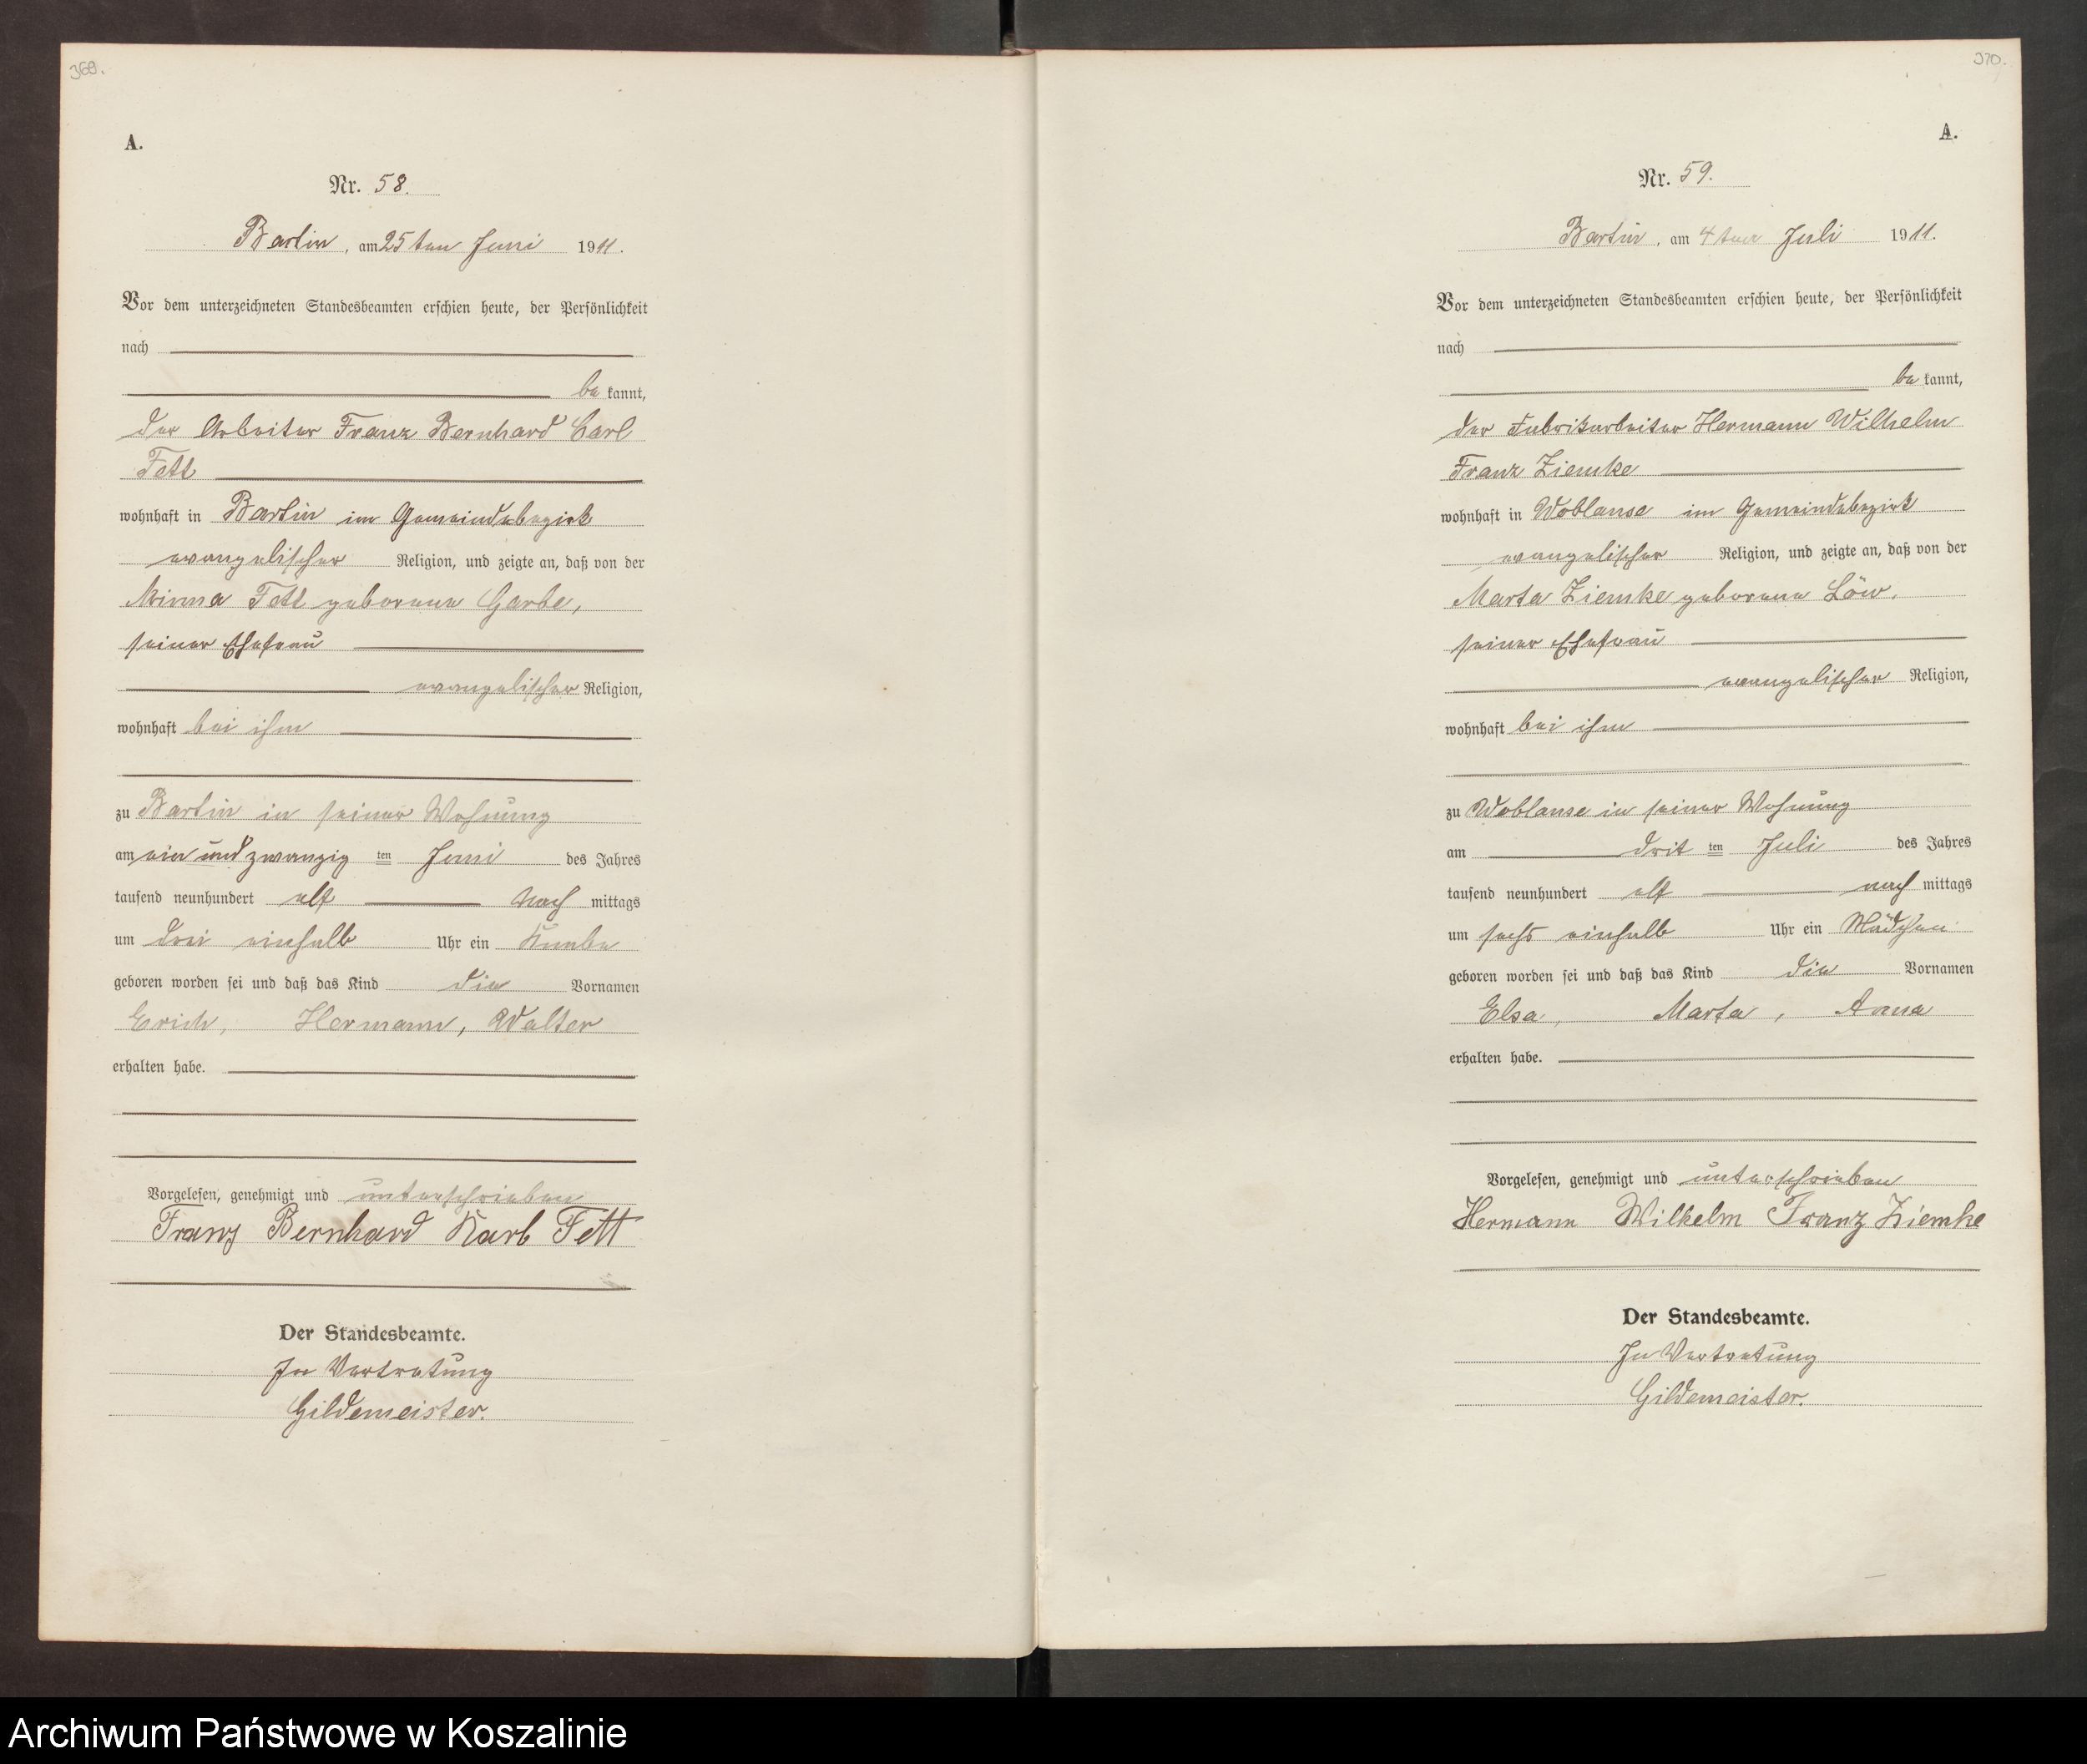 369.
A.
Nr. 58.
Bartin, am 25ten Juni 1911.
Vor dem unterzeichneten Standesbeamten erschien heute, der Persönlichkeit
nach
be kannt,
der Arbeiter Franz Bernhard Carl
Fett
wohnhaft in Bartin im Gemeindebezirk
evangelischer Religion, und zeigte an, daß von der
Minna Fett geborene Garbe,
seiner Ehefrau
evangelischer Religion,
wohnhaft bei ihm
zu Bartin in seiner Wohnung
am ein und zwanzig ten Juni des Jahres
tausend neunhundert elf Nach mittags
um drei einhalb Uhr ein Knabe
geboren worden sei und daß das Kind die Vornamen
Erich, Hermann, Walter
erhalten habe.
Vorgelesen, genehmigt und unterschrieben
Franz Bernhard Karl Fett
Der Standesbeamte.
In Vertretung
Gildemeister.
370.
A.
Nr. 59.
Bartin, am 4ten Juli 1911.
Vor dem unterzeichneten Standesbeamten erschien heute, der Persönlichkeit
nach
be kannt,
der Fabrikarbeiter Hermann Wilhelm
Franz Ziemke
wohnhaft in Woblanse im Gemeindebezirk
evangelischer Religion, und zeigte an, daß von der
Marta Ziemke geborene Löw,
seiner Ehefrau
evangelischer Religion,
wohnhaft bei ihm
zu Woblanse in seiner Wohnung
am drit ten Juli des Jahres
tausend neunhundert elf nach mittags
um sechs einhalb Uhr ein Mädchen
geboren worden sei und daß das Kind die Vornamen
Elsa, Marta, Anna
erhalten habe.
Vorgelesen, genehmigt und unterschrieben
Hermann Wilhelm Franz Ziemke
Der Standesbeamte.
In Vertretung
Gildemeister.
Archiwum Państwowe w Koszalinie